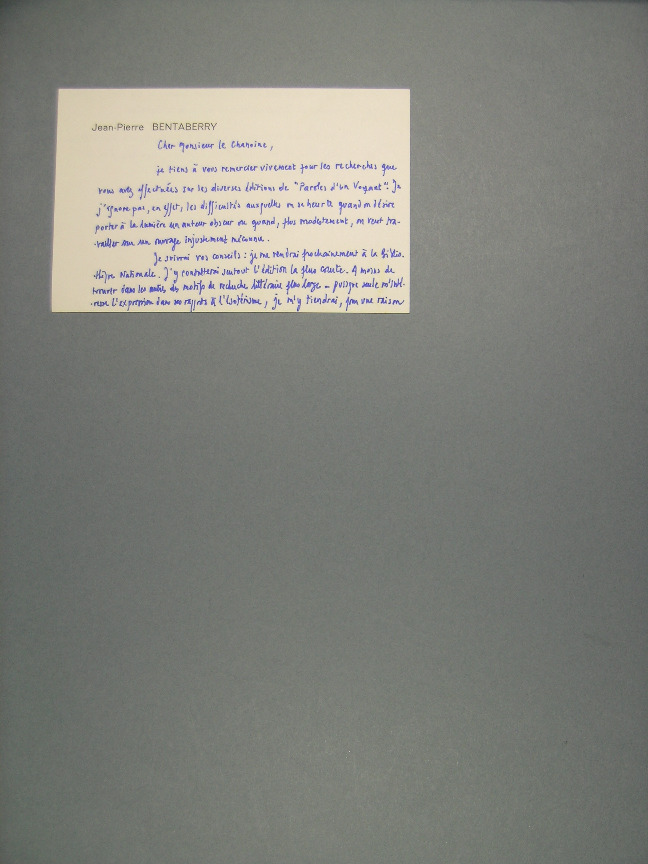 Jean-Pierre BENTABERRY
Cher Monsieur le Chanoine,
je tiens à vous remercier vivement pour les recherches que
vous avez effectuées sur les diverses éditions de "Paroles d'un Voyant". Je
n'ignore pas, en effet, les difficultés auxquelles on se heurte quand on désire
porter à la lumière un auteur obscur ou quand, plus modestement, on veut tra-
-vailler sur un ouvrage injustement méconnu.
Je suivrai vos conseils : je me rendrai prochainement à la Biblio-
-thèque Nationale. J'y consulterai surtout l'édition la plus courte. A moins de
trouver dans les autres des motifs de recherche littéraire plus large - puisque seule m'inté-
-resse l'expression dans ses rapports à l'ésotérisme, je m'y tiendrai, pour une raison